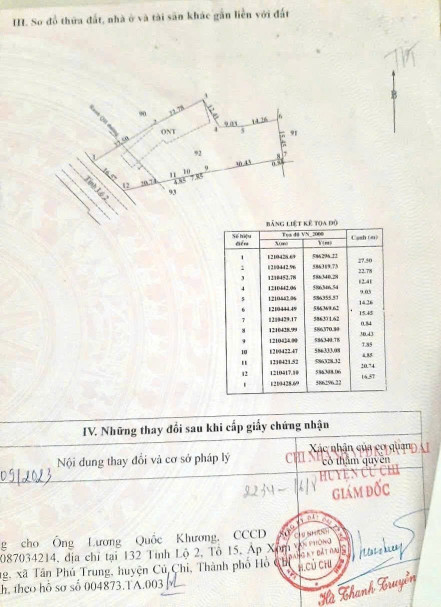 III. Sơ đồ thửa đất, nhà ở và tài sản khác gắn liền với đất
B
90
22.78
3
12.41
27.50
2
ONT
4
9.03
5
14.26
6
91
15.45
7
8
0.84
92
30.43
9
10
7.85
11
4.85
1
16.57
12
20.74
93
Tỉnh Lộ 2
BẢNG LIỆT KÊ TỌA ĐỘ
Số hiệu điểm Tọa độ VN_2000 Cạnh (m)
X(m) Y(m)
1 1210428.69 586296.22
27.50
2 1210442.96 586319.73
22.78
3 1210452.78 586340.28
12.41
4 1210442.06 586346.54
9.03
5 1210442.06 586355.57
14.26
6 1210444.49 586369.62
15.45
7 1210429.17 586371.62
0.84
8 1210428.99 586370.80
30.43
9 1210424.00 586340.78
7.85
10 1210422.47 586333.08
4.85
11 1210421.52 586328.32
20.74
12 1210417.10 586308.06
16.57
1 1210428.69 586296.22
IV. Những thay đổi sau khi cấp giấy chứng nhận
Nội dung thay đổi và cơ sở pháp lý
Xác nhận của cơ quan
có thẩm quyền
HUYỆN CỦ CHI
GIÁM ĐỐC
09/2023
CHI NHÁNH
VĂN PHÒNG
ĐĂNG KÝ ĐẤT ĐAI
H.CỦ CHI
g cho Ông Lương Quốc Khương, CCCD
087034214, địa chỉ tại 132 Tỉnh Lộ 2, Tổ 15, Ấp Xóm
ng, xã Tân Phú Trung, huyện Củ Chi, Thành phố Hồ Chí
h, theo hồ sơ số 004873.TA.003
Hà Thanh Truyền